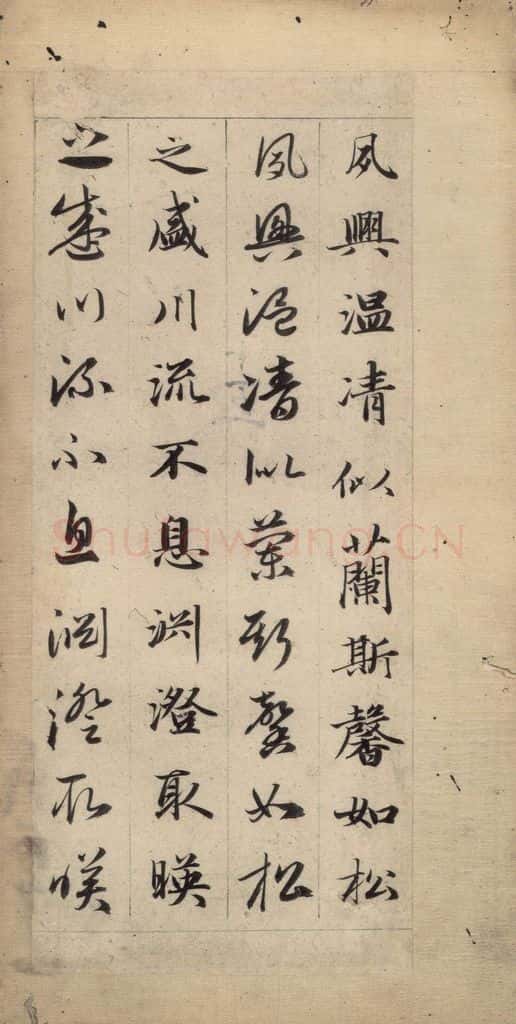 夙興温凊似蘭斯馨如松
夙興温凊似蘭斯馨如松
之盛川流不息淵澄取暎
之盛川流不息淵澄取暎
Shufawang.CN